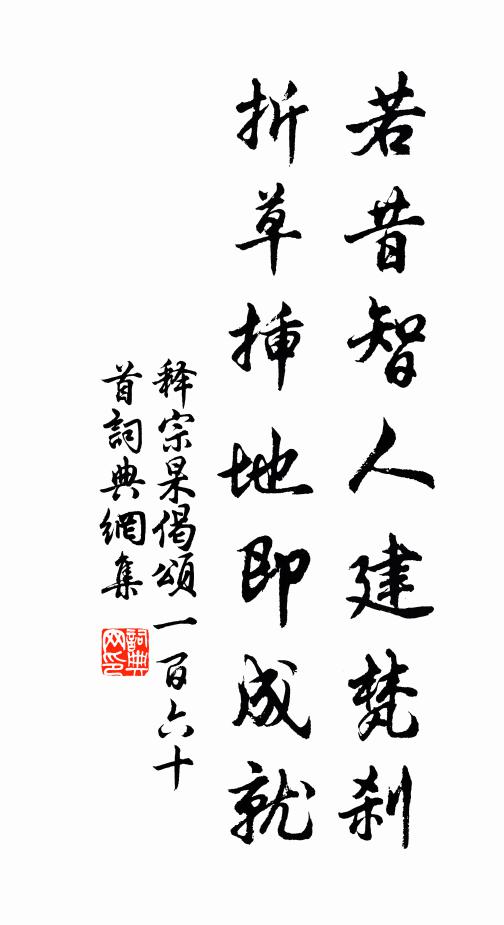 若昔智人建梵刹
折草挿地即成就
释宗杲偈頌一百六十
首詞典網集
詞典网印